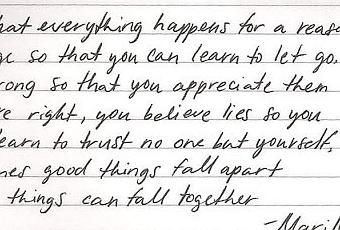 hat everything happens for a reaso
ge so that you can learn to let go,
rong so that you appreciate them
re right, you believe lies so you
learn to trust no one but yourself,
nes good things fall apart
things can fall together
-Maril